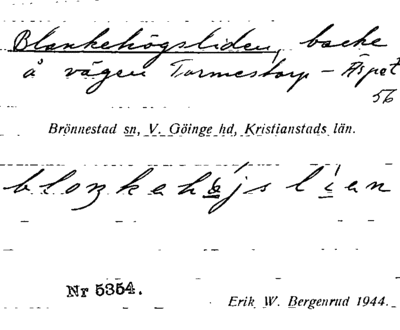 Blankehögsliden, backe
å vägen Tormestorp – Äspet
56
Brönnestad sn, V. Göinge hd, Kristianstads län.
Nr 5354.
Erik W. Bergenrud 1944.